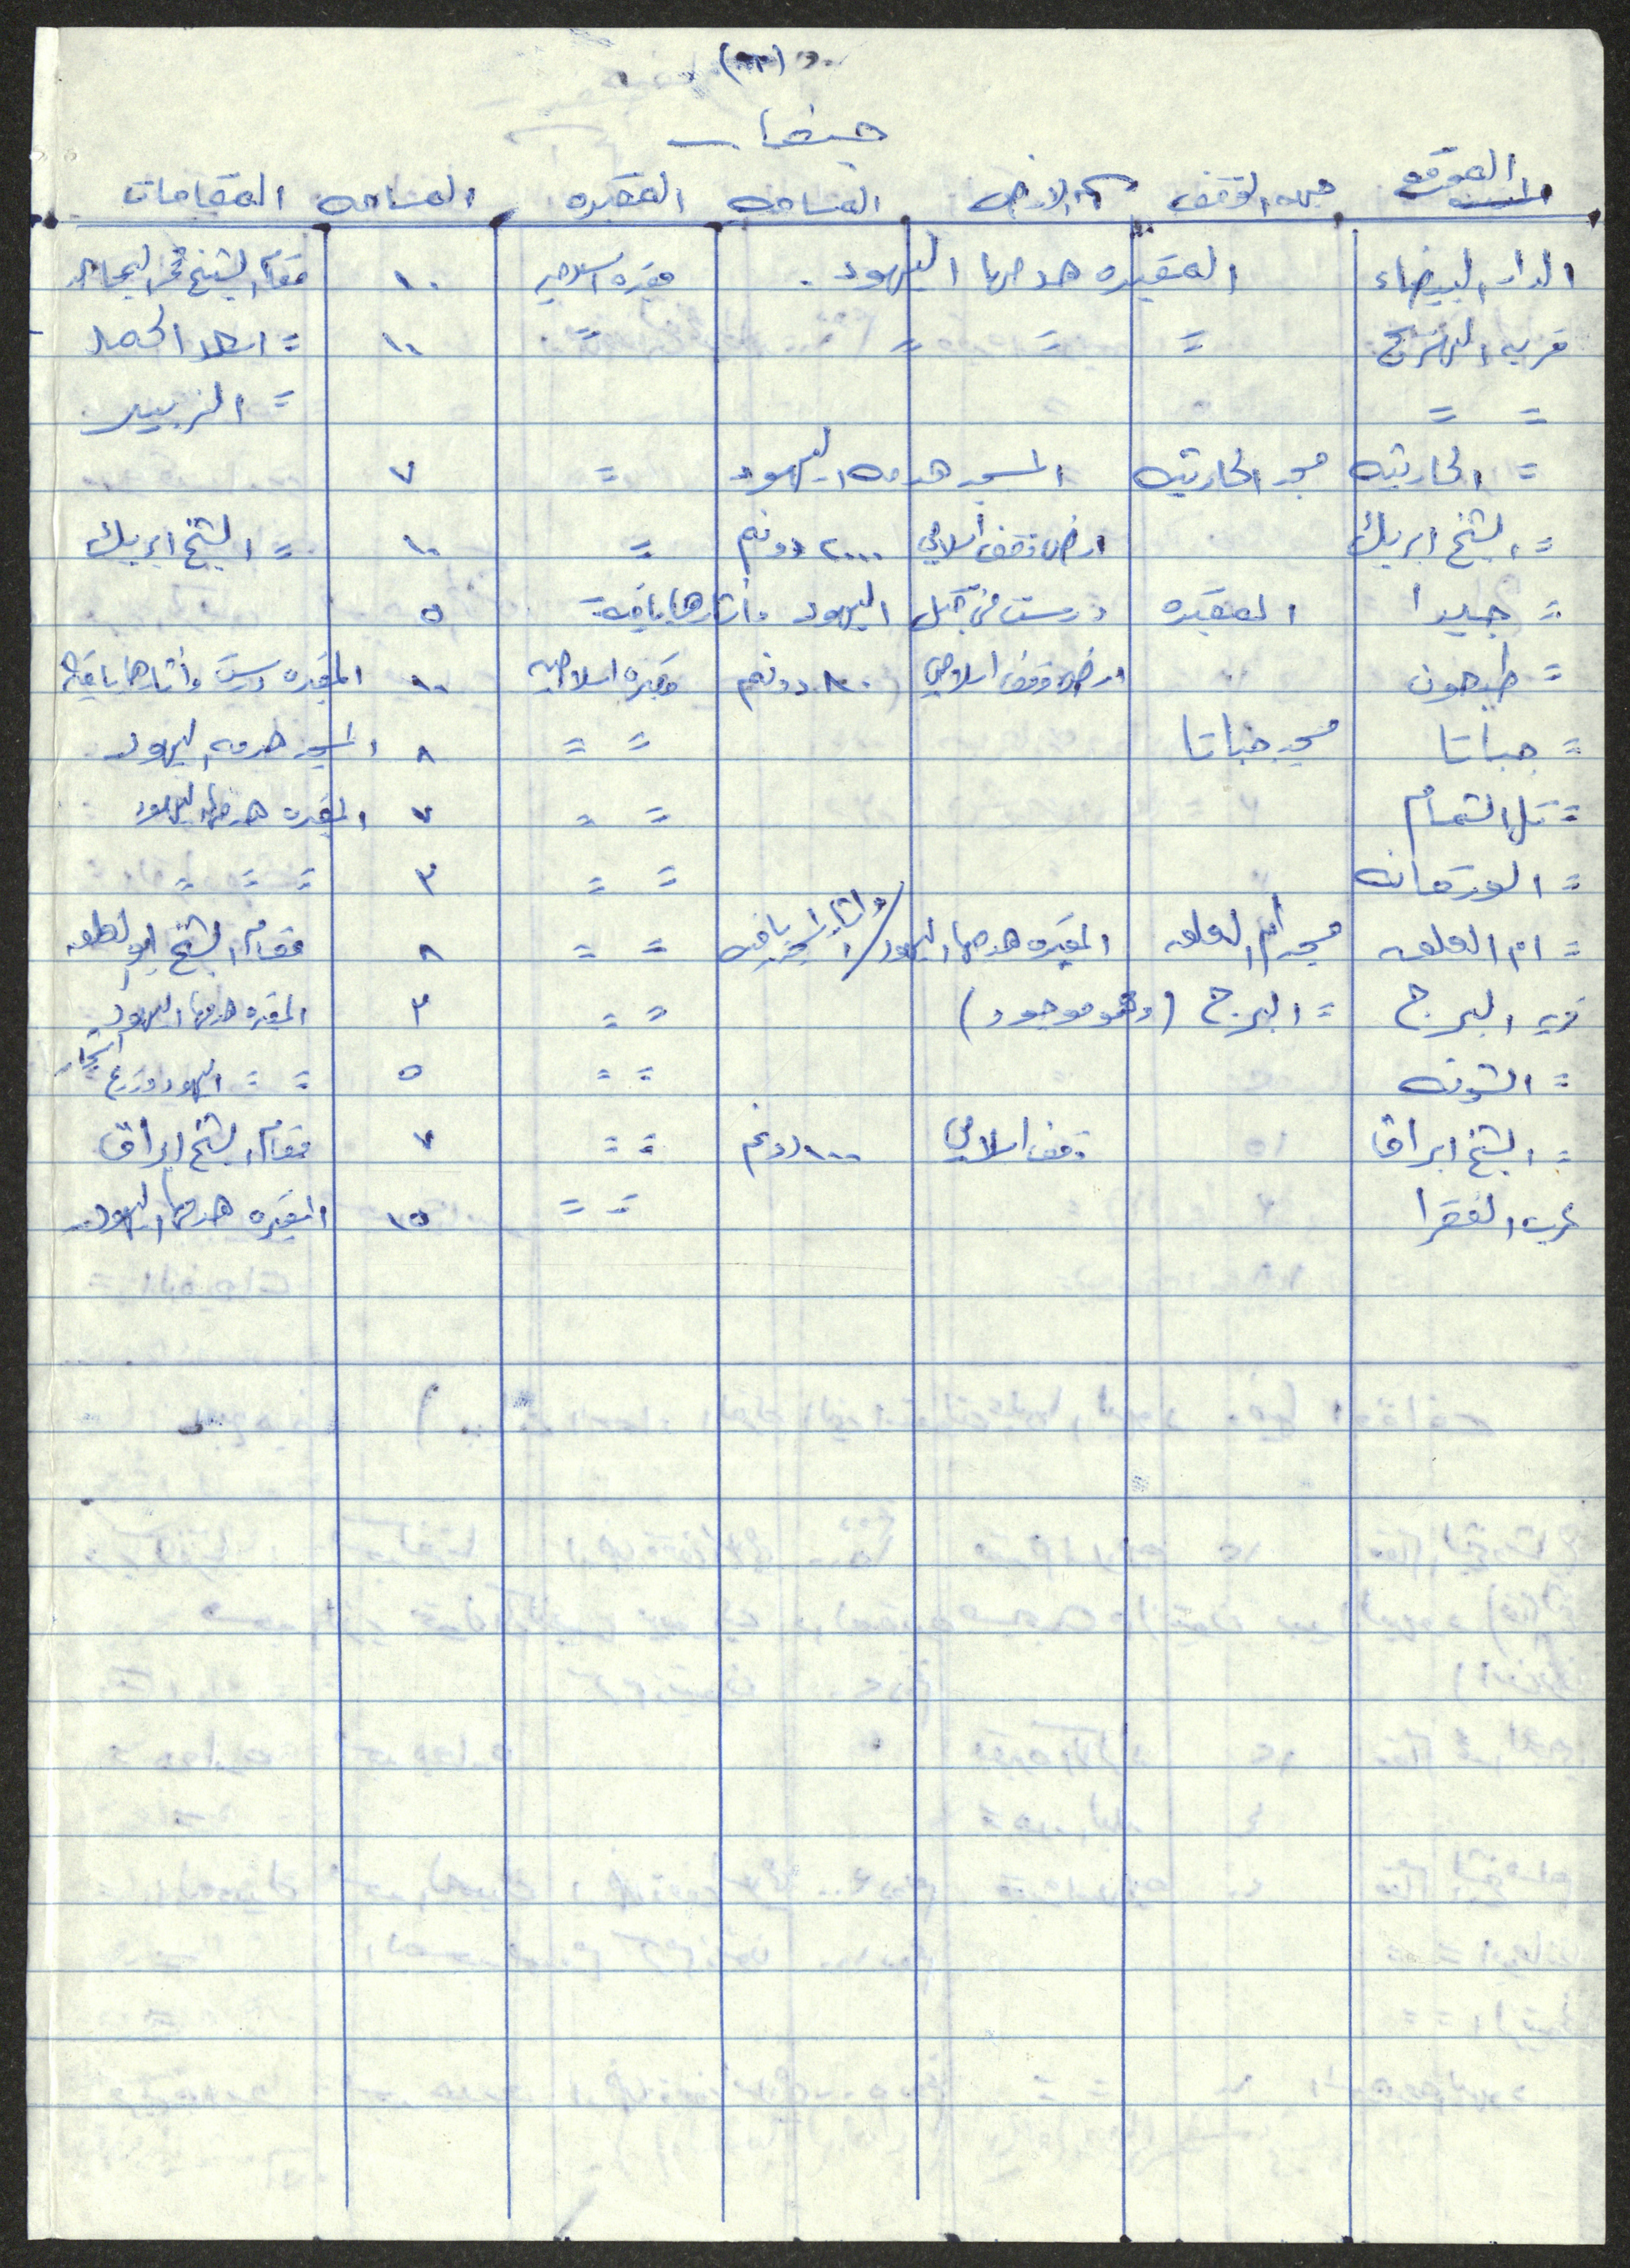 حيفا
الموقع جهة الوقف الارض المساحه المقبره المساحه المقامات
الدار البيضاء المقبره هدمها اليهود . مقبره اسلاميه ١٠ مقام الشيخ
قريه = = = = ١٠ =
= = = الزبيدي
= الحارثيه مسجد الحارثيه المسجد هدمه اليهود = ٧
= الشيخ ابريك ارض وقف اسلامي ٢٠٠٠ دونم = ١٠ = الشيخ ابريك
= جيدا المقبره درست من قبل اليهود وأثارها باقية ٥
= طبعون ارض وقف اسلامي دونم مقبره اسلاميه ١٠ المقبره درست وأثارها باقية
= جباتا مسجد جباتا = = ٨ المسجد هدمه اليهود
= تل الشمام = = ٧ المقبره هدمها اليهود
= الورقانه = = ٣ = = =
= ام العلق مسجد أم العلق المقبره هدمها اليهود / واثار المسجد باقيه = = ٨ مقام الشيخ
قريه البرج = البرج (وهو موجود) = = ٣ المقبره هدمها اليهود
= الشونه = = ٥ = = اليهود وزرع اشجار
= الشيخ ابراق وقف اسلامي ١٠٠٠ دونم = = ٧ مقام الشيخ ابراق
عرب الفقرا = = ١٥ المقبره هدمها اليهود